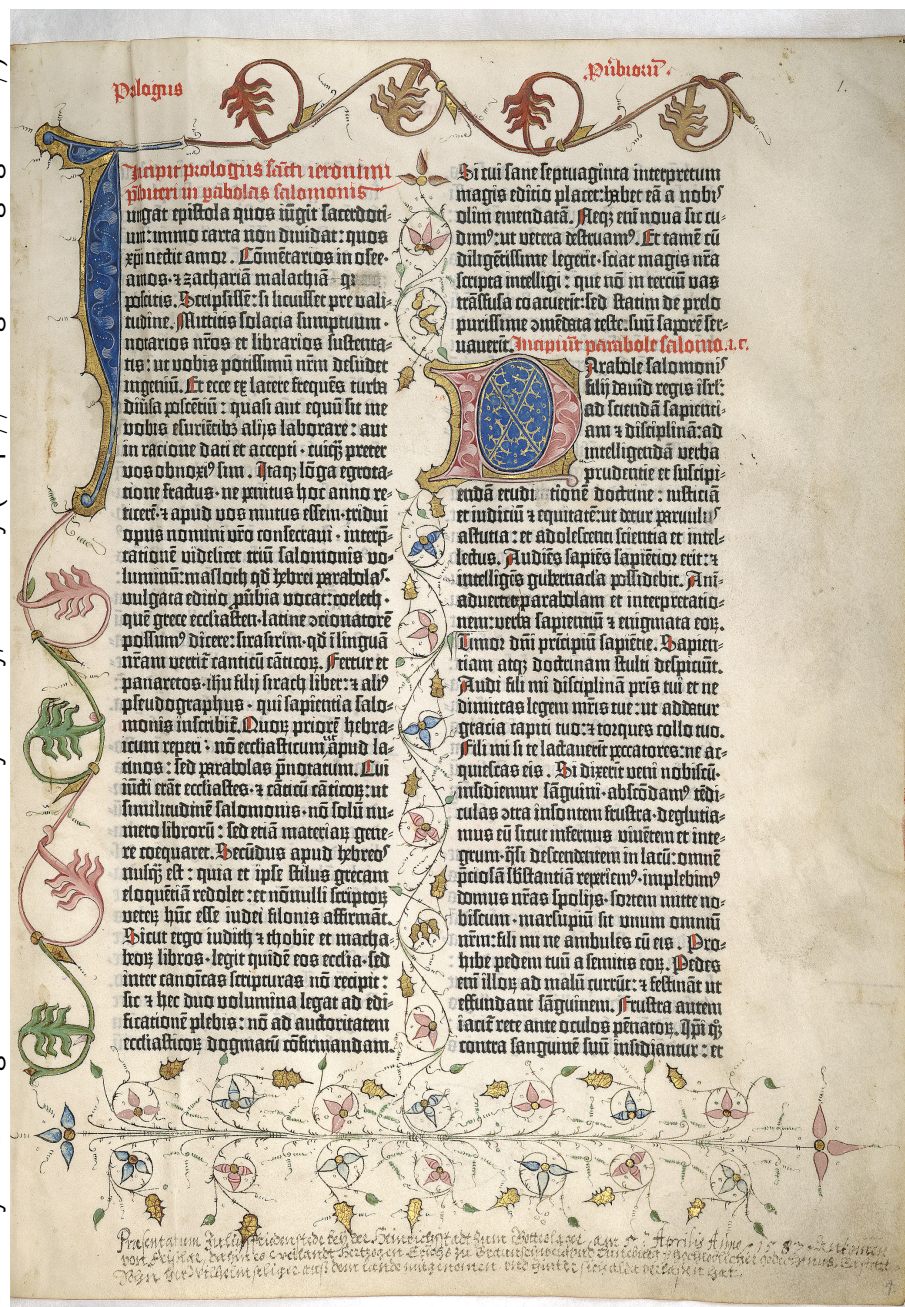 Prologus
Prouerbiorum
1.
Incipit prologus sancti ieronimi
presbiteri in parabolas salomonis
Iungat epistola quos iūgit sacerdoti-
um: immo carta non diuidat: quos
xp̄i nectit amor. Cōmētarios in osee.
amos. ⁊ zachariā malachiā q̄
poscitis. Scripsissē: si licuisset pre vali-
tudine. Mittitis solacia sumptuum.
notarios nr̄os et librarios sustenta-
tis: ut vobis potissimū nr̄m desudet
ingeniū. Et ecce ex latere frequēs turba
diūsa poscētiū: quasi aut equū sit me
vobis esuriētibꝫ alijs laborare: aut
in ratione dati et accepti. cuiqꝫ preter
vos obnoxiꝰ sim. Itaqꝫ lōga egrota-
tione fractus. ne penitus hoc anno re-
ticerē. ⁊ apud vos mutus essem. tridui
opus nomini vr̄o consecraui. interp̄-
tationē videlicet triū salomonis vo-
luminū: masloth qd̄ hebrei parabolas.
vulgata editio ꝓūbia vocat: coeleth.
quē grece ecclīasten. latine ꝯcionatorē
possumꝰ dicere: sirasirim. qd̄ ī linguā
nr̄am vertit̄ canticū cāticoꝝ. Fertur et
panaretos. ihu filij sirach liber: ⁊ aliꝰ
pseudographus. qui sapientia salo-
monis inscribit̄. Quoꝝ priorē hebra-
icum reperi: nō ecclīasticum ut apud la-
tinos: sed parabolas p̄notatum. Cui
iūcti erāt ecclīastes. ⁊ cāticū cāticoꝝ: ut
similitudinē salomonis. nō solū nu-
mero librorū: sed etiā materiaꝝ gene-
re coequaret. Secūdus apud hebreos
nusqꝫ est: quia et ipse stilus grecam
eloquētiā redolet: et nōnulli scriptoꝝ
veteꝝ hūc esse iudei filonis affirmāt.
Sicut ergo iudith ⁊ thobie et macha-
beoꝝ libros. legit quidē eos ecclīa. sed
inter canoīcas scripturas nō recipit:
sic ⁊ hec duo volumina legat ad edi-
ficationē plebis: nō ad auctoritatem
ecclīasticoꝝ dogmatū cōfirmandam.
Si cui sane septuaginta interpretum
magis editio placet: habet eā a nobis
olim emendatā. Neqꝫ enī noua sic cu-
dimꝰ: ut vetera destruamꝰ. Et tamē cū
diligētissime legerit. sciat magis nr̄a
scripta intelligi: que nō in terciū vas
trāsfusa coacuerīt: sed statim de prelo
purissime ꝯmēdata teste. suū saporē ser-
uauerīt. Incipiūt parabole salomo. i. c.
Parabole salomonis
filij dauid regis isrl̄:
ad sciendā sapienti-
am ⁊ disciplinā: ad
intelligendā verba
prudentie et suscipi-
endā eruditionē doctrine: iusticiā
et iudiciū ⁊ equitatē: ut detur paruulis
astutia: et adolescenti scientia et intel-
lectus. Audiēs sapiēs sapiētior erit: ⁊
intelligēs gubernacla possidebit. Ani-
aduertet parabolam et interpretatio-
nem: verba sapientiū ⁊ enigmata eoꝝ.
Timor dn̄i prīcipiū sapiētie. Sapien-
tiam atqꝫ doctrinam stulti despiciūt.
Audi fili mi disciplinā pr̄is tui et ne
dimittas legem mr̄is tue: ut addatur
gracia capiti tuo: ⁊ torques collo tuo.
Fili mi si te lactauerīt peccatores: ne ac-
quiescas eis. Si dixerīt veni nobiscū.
insidiemur sāguini. abscōdamꝰ tēdi-
culas ꝯtra insontem frustra. deglutia-
mus eū sicut infernus viuētem et inte-
grum. q̄si descendentem in lacū: omnē
p̄ciosā sb̄stantiā reperiemꝰ. implebimꝰ
domus nr̄as spolijs. sortem mitte no-
biscum. marsupiū sit vnum omniū
nr̄m: fili mi ne ambules cū eis. Pro-
hibe pedem tuū a semitis eoꝝ. Pedes
enī illoꝝ ad malū currūt: ⁊ festināt ut
effundant sāguinem. Frustra autem
iacit̄ rete ante oculos pēnatoꝝ. Ip̄i qꝫ
contra sanguinē suū insidiantur: et
Præsentatum zu der Heinrichstadt zum Gotteslager, am 5. Aprilis Anno 1587